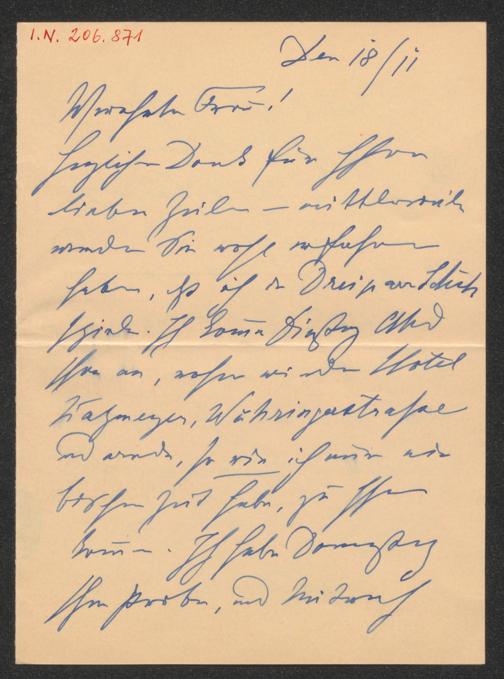 I.N. 206.871
Den 18/11
Verehrte Frau!
Herzlichen Dank für Ihren
lieben Zeilen – mittlerweile
werden Sie wohl erfahren
haben, daß ich in
spiele. Ich komme Dienstag Abend
an, wohne wieder Hotel
Währingerstrasse
und werde, so wie ich nur ein
bischen Zeit habe, zu Ihnen
kommen. Ich habe Donnerstag
schon Probe, und Mittwoch